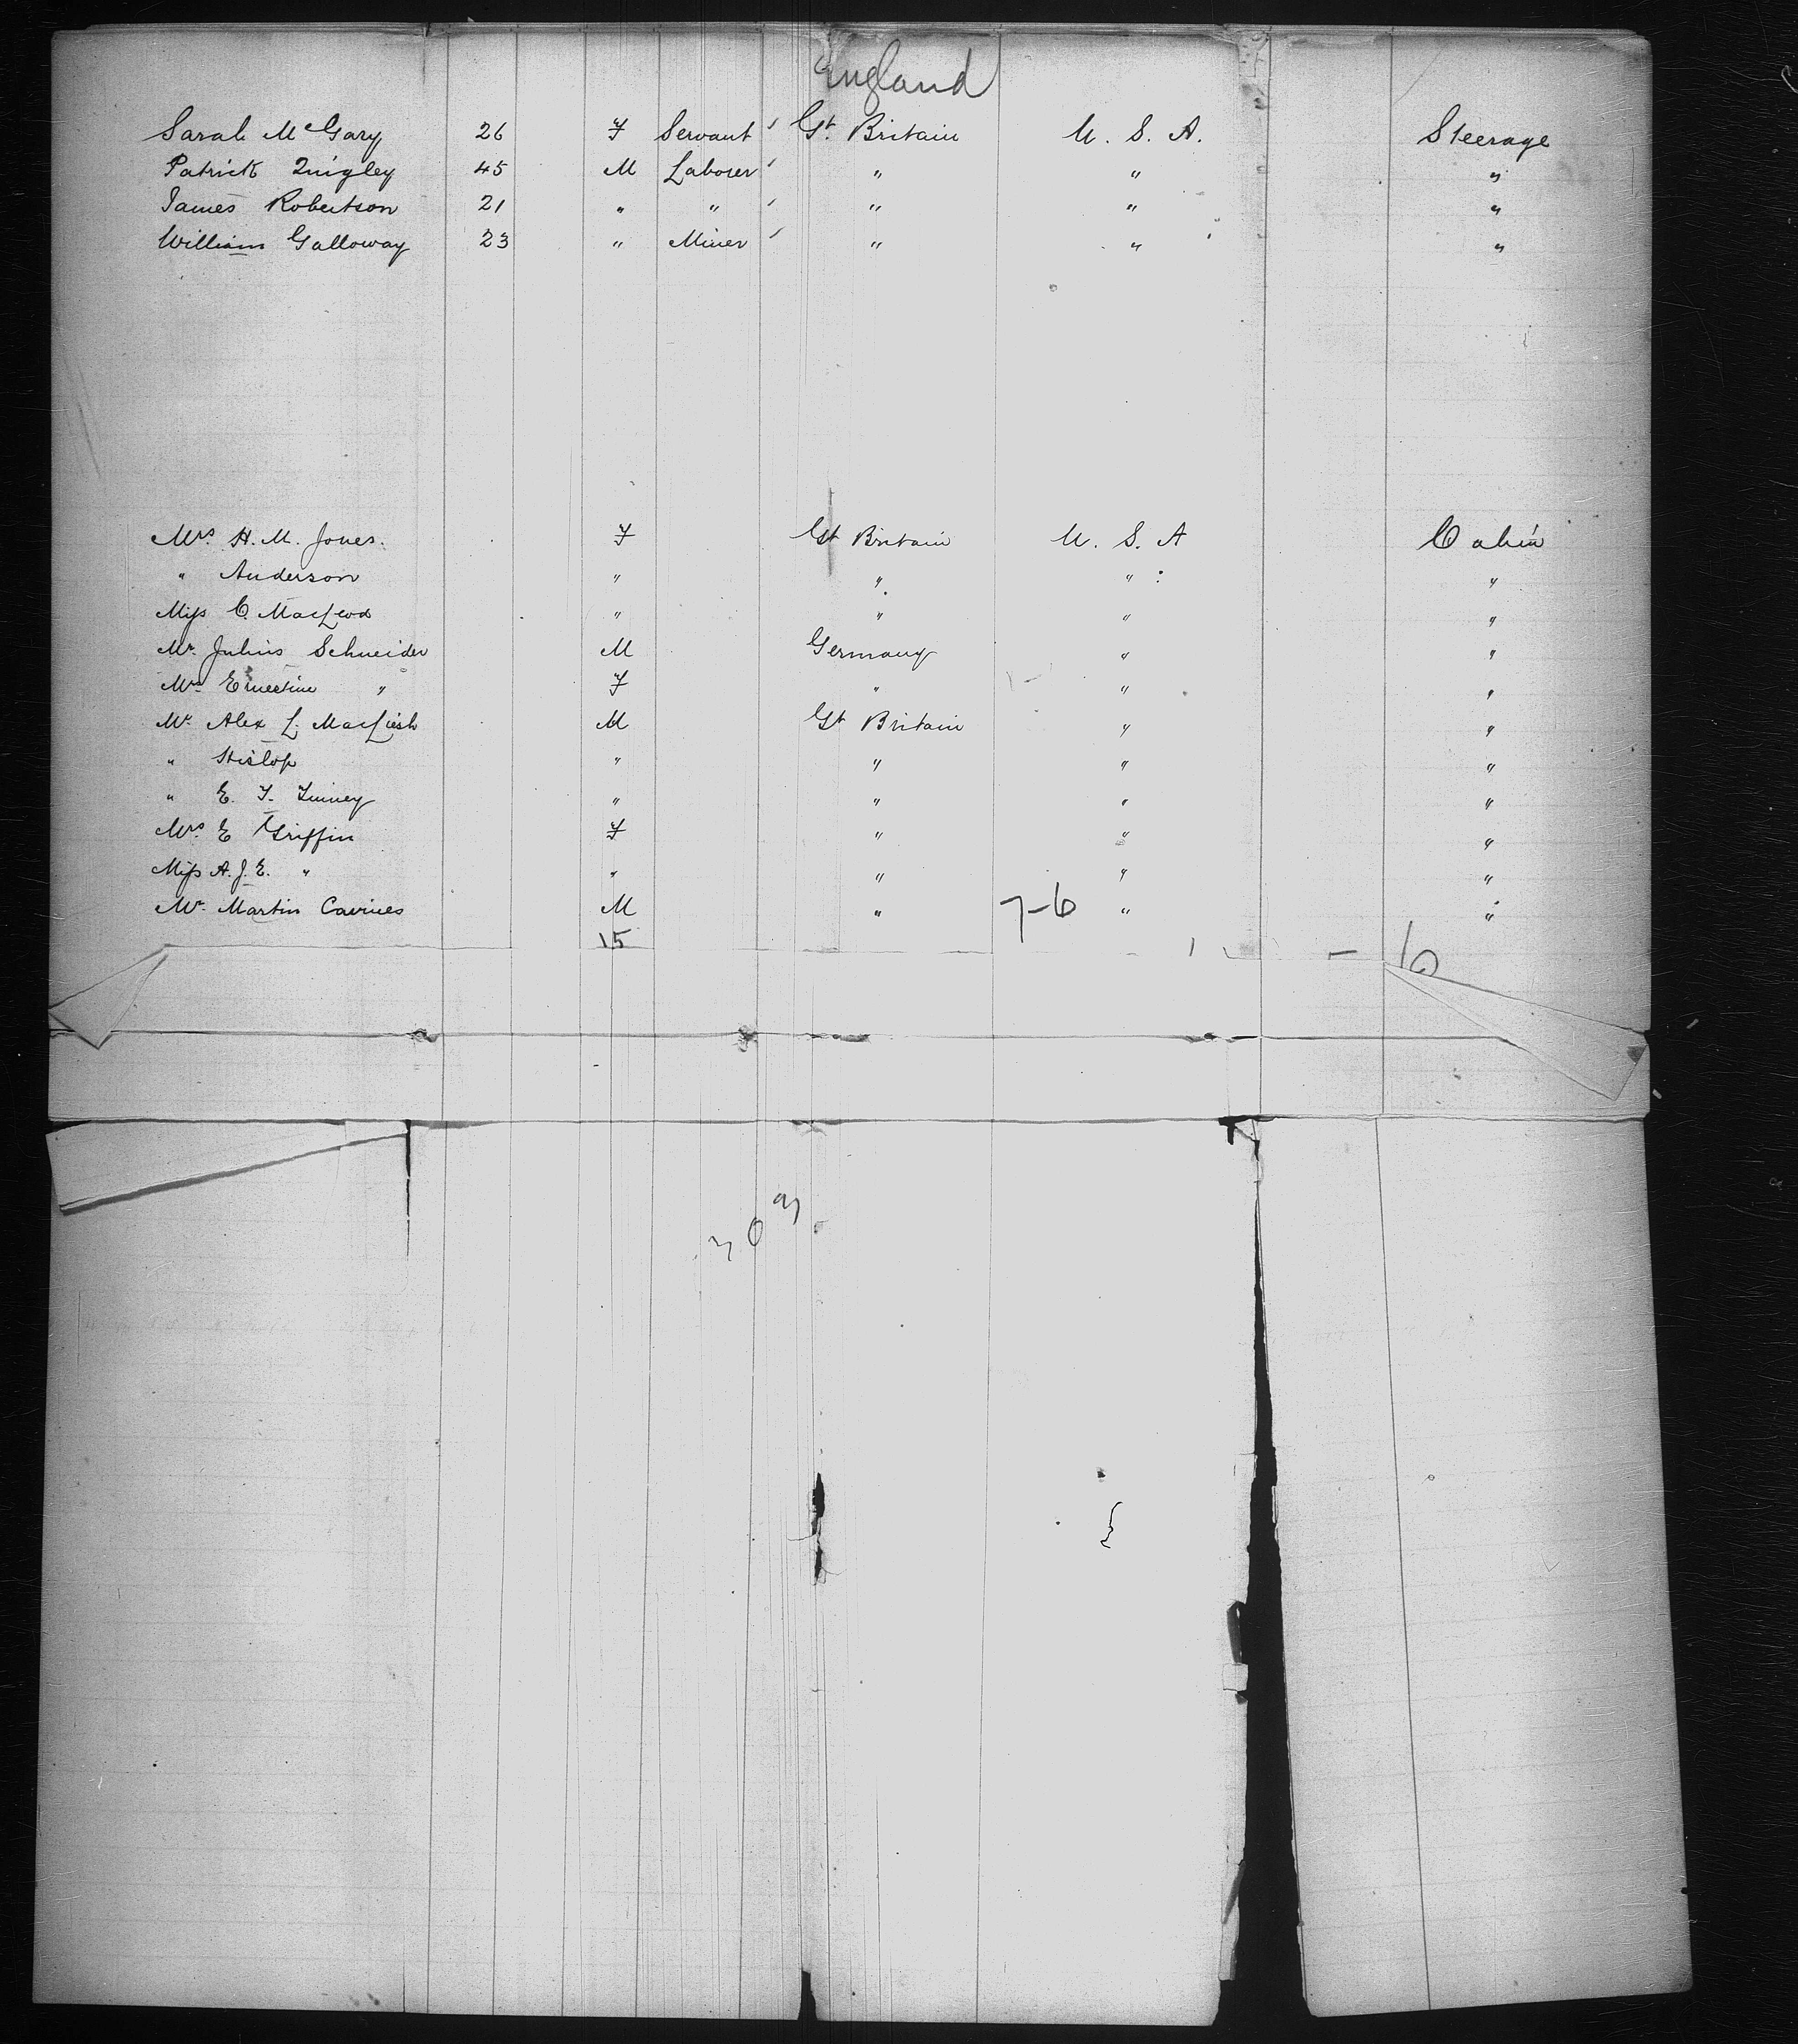 England
Sarah McGary 26 F Servant ' Gt Britain U. S. A. Steerage
Patrick Quigley 45 M Laborer ' " " "
James Robertson 21 " " ' " " "
William Galloway 23 " Miner ' " " "
Mrs. H. M. Jones. F Gt Britain U. S. A Cabin
" Anderson " " " "
Miss C. MacLeod " " " "
Mr. Julius Schneider M Germany " "
Mrs Ernestine " F " " "
Mr. Alex L. M Gt Britain " "
" Hislop " " " "
" E. F. " " " "
Mrs. E Griffin F " " "
Miss A. J. E. " " " " "
Mr. Martin M " 7-6 " "
15 - 6